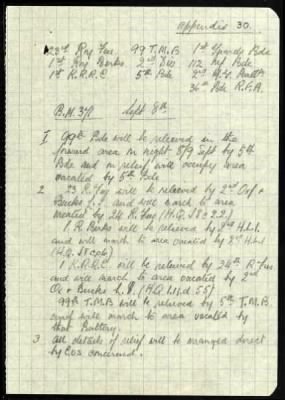 Appendix 30.
23rd Roy Fus 99 T.M.B 1st Guards Bde
1st Roy Berks 2nd Div 112 Inf Bde
1st K.R.R.C 5th Bde 2nd M.G. Battn
36th Bde R.F.A.
B.M. 371 Sept 8th
I 99th Bde will be relieved in the
forward area on night 8/9 Sept by 5th
Bde and on relief will occupy area
vacated by 5th Bde
2. 23 R. Fus will be relieved by 2nd Oxf &
Bucks L.I. and will march to area
vacated by 24 R. Fus (H.Q.
1 R. Berks will be relieved by 2nd H.L.I.
and will march to area vacated by 2nd H.L.I
1 K.R.R.C will be relieved by 24th R Fus
and will march to area vacated by 2nd
Ox & Bucks L.I.
99th T.M.B will be relieved by 5th T.M.B
and will march to area vacated by
that Battery.
3 All details of relief will be arranged direct
by C.O.s concerned.